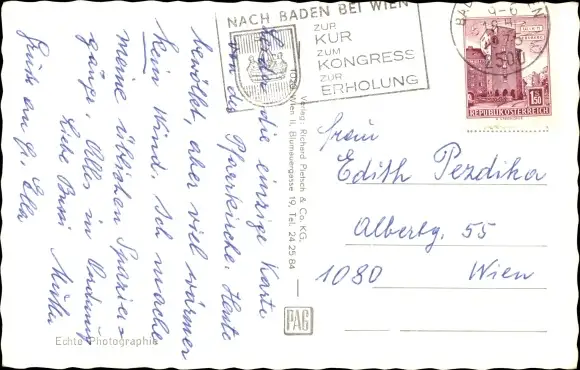 Das ist die einzige Karte
von der Pfarrkirche. Heute
bewölkt, aber viel wärmer
kein Wind. Ich mache
meine üblichen Spazier=
gänge. Alles in Ordnung
Liebe Bussi Mutti
Gruß an
NACH BADEN BEI WIEN
ZUR
KUR
ZUM
KONGRESS
ZUR
ERHOLUNG
2500
1.50
REPUBLIK ÖSTERREICH
Verlag: Richard Pietsch & Co. KG,
1020 Wien II, Blumauergasse 19, Tel. 24 25 84
PAG
Frau
Edith Pezdika
Albertg. 55
1080 Wien
Echte Photographie